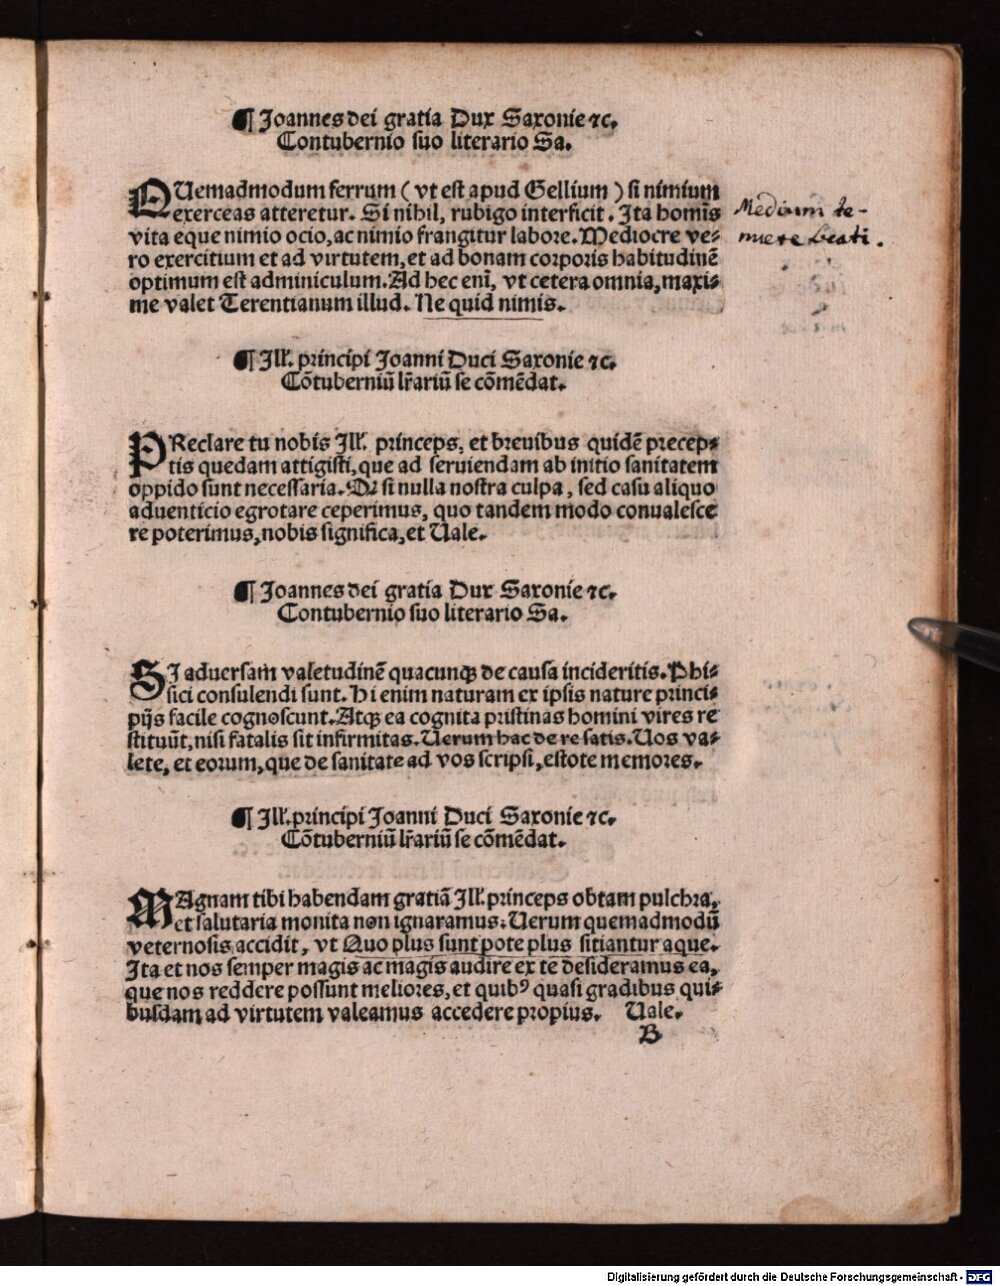 ¶ Joannes dei gratia Dux Saxonie ⁊c.
Contubernio suo literario Sa.
QUemadmodum ferrum ( vt est apud Gellium ) si nimium
exerceas atteretur. Si nihil, rubigo interficit. Ita homīs
vita eque nimio ocio, ac nimio frangitur labore. Mediocre ve⸗
ro exercitium et ad virtutem, et ad bonam corporis habitudinē
optimum est adminiculum. Ad hec enī, vt cetera omnia, maxi⸗
me valet Terentianum illud. Ne quid nimis.
Medium te-
nuere beati.
¶ Ill. principi Joanni Duci Saxonie ⁊c.
Cōtuberniū lr̄ariū se cōmēdat.
PReclare tu nobis Ill. princeps, et brevibus quidē precep⸗
tis quedam attigisti, que ad seruiendam ab initio sanitatem
oppido sunt necessaria. Qꝛ si nulla nostra culpa, sed casu aliquo
aduenticio egrotare ceperimus, quo tandem modo conualesce
re poterimus, nobis significa, et Uale.
¶ Joannes dei gratia Dux Saxonie ⁊c.
Contubernio suo literario Sa.
SI aduersam valetudinē quacunqꝫ de causa incideritis. Phi⸗
sici consulendi sunt. Hi enim naturam ex ipsis nature princi⸗
pijs facile cognoscunt. Atqꝫ ea cognita pristinas homini vires re
stituūt, nisi fatalis sit infirmitas. Uerum hac de re satis. Uos va⸗
lete, et eorum, que de sanitate ad vos scripsi, estote memores.
¶ Ill. principi Joanni Duci Saxonie ⁊c.
Cōtuberniū lr̄ariū se cōmēdat.
MAgnam tibi habendam gratiā Ill. princeps ob tam pulchra,
et salutaria monita non ignaramus. Uerum quemadmodū
veternosis accidit, vt Quo plus sunt pote plus sitiantur aque.
Ita et nos semper magis ac magis audire ex te desideramus ea,
que nos reddere possunt meliores, et quibꝰ quasi gradibus qui⸗
busdam ad virtutem valeamus accedere propius. Uale.
B
Digitalisierung gefördert durch die Deutsche Forschungsgemeinschaft - DFG